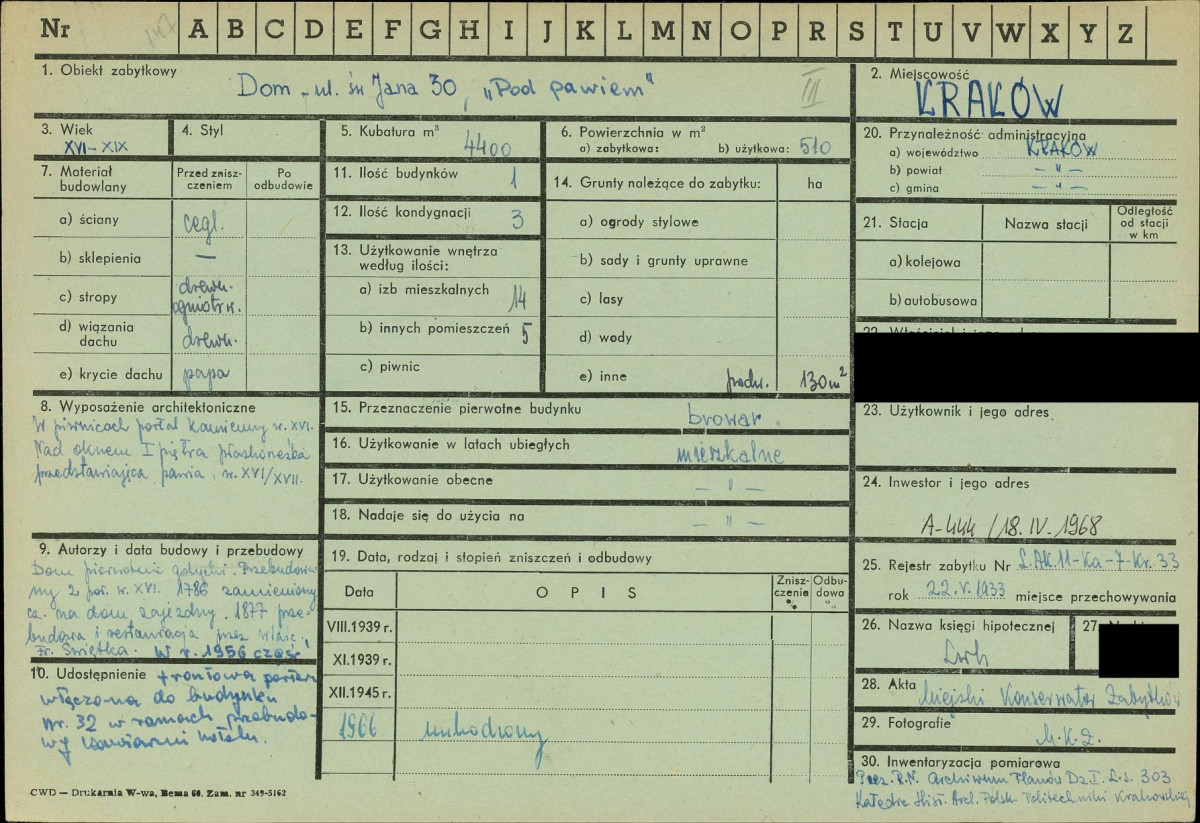 Nr A B C D E F G H I J K L M N O P R S T U V W X Y Z
1. Obiekt zabytkowy
Dom - ul. św Jana 30, „Pod pawiem"
III
2. Miejscowość
KRAKÓW
3. Wiek
XVI - XIX
4. Styl
5. Kubatura m³
4400
6. Powierzchnia w m²
a) zabytkowa: b) użytkowa: 510
20. Przynależność administracyjna
a) województwo KRAKÓW
b) powiat - " -
c) gmina - " -
7. Materiał budowlany
Przed zniszczeniem
Po odbudowie
a) ściany cegl.
b) sklepienia —
c) stropy drewn. ogniotrw.
d) wiązania dachu drewn.
e) krycie dachu papa
11. Ilość budynków 1
12. Ilość kondygnacji 3
13. Użytkowanie wnętrza
według ilości:
a) izb mieszkalnych 14
b) innych pomieszczeń 5
c) piwnic
14. Grunty należące do zabytku: ha
a) ogrody stylowe
b) sady i grunty uprawne
c) lasy
d) wody
e) inne podw. 130 m²
21. Stacja
Nazwa stacji
Odległość od stacji w km
a) kolejowa
b) autobusowa
8. Wyposażenie architektoniczne
W piwnicach portal kamienny w. XVI.
Nad oknem I piętra płaskorzeźba
przedstawiająca pawia, w. XVI/XVII.
15. Przeznaczenie pierwotne budynku browar
16. Użytkowanie w latach ubiegłych mieszkalne
17. Użytkowanie obecne - " -
18. Nadaje się do użycia na - " -
23. Użytkownik i jego adres
24. Inwestor i jego adres
A-444 / 18.IV.1968
9. Autorzy i data budowy i przebudowy
Dom pierwotnie gotycki. Przebudowa-
ny 2 poł. w. XVI. 1786 zamieniony
cz. na dom zajezdny. 1877 prze-
budowa i restauracja przez właśc.
Fr. Świętka. W r. 1956 część
10. Udostępnienie frontowa parteru
włączona do budynku
nr. 32 w ramach przebudo-
wy kawiarni hotelu.
19. Data, rodzaj i stopień zniszczeń i odbudowy
Data
OPIS
Zniszczenie %
Odbudowa %
VIII.1939 r.
XI.1939 r.
XII.1945 r.
1966
25. Rejestr zabytku Nr L.AK.11-Ka-7-Kr.33
rok 22.V.1933 miejsce przechowywania
26. Nazwa księgi hipotecznej
Lwh
27.
28. Akta
Miejski Konserwator Zabytków
29. Fotografie
M.K.Z.
30. Inwentaryzacja pomiarowa
Prez. R.N. Archiwum Planów Dz. I. L.s. 303
Katedra Hist. Arch. Polsk. Politechniki Krakowskiej
CWD — Drukarnia W-wa, Bema 60. Zam. nr 349-5162